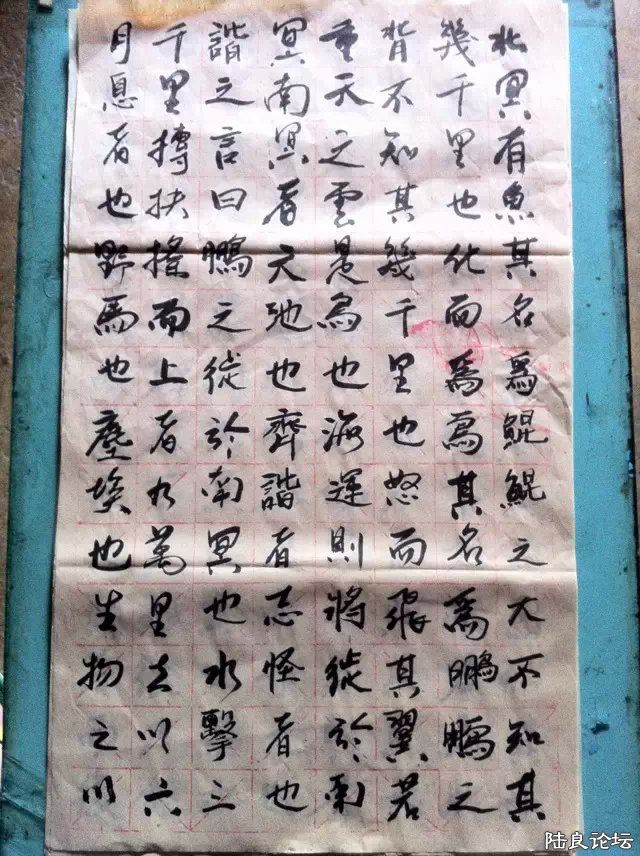 北冥有魚其名為鯤鯤之大不知其
幾千里也化而為鳥其名為鵬鵬之
背不知其幾千里也怒而飛其翼若
垂天之雲是鳥也海運則將徙於南
冥南冥者天池也齊諧者志怪者也
諧之言曰鵬之徙於南冥也水擊三
千里摶扶搖而上者九萬里去以六
月息者也野馬也塵埃也生物之以
陆良论坛